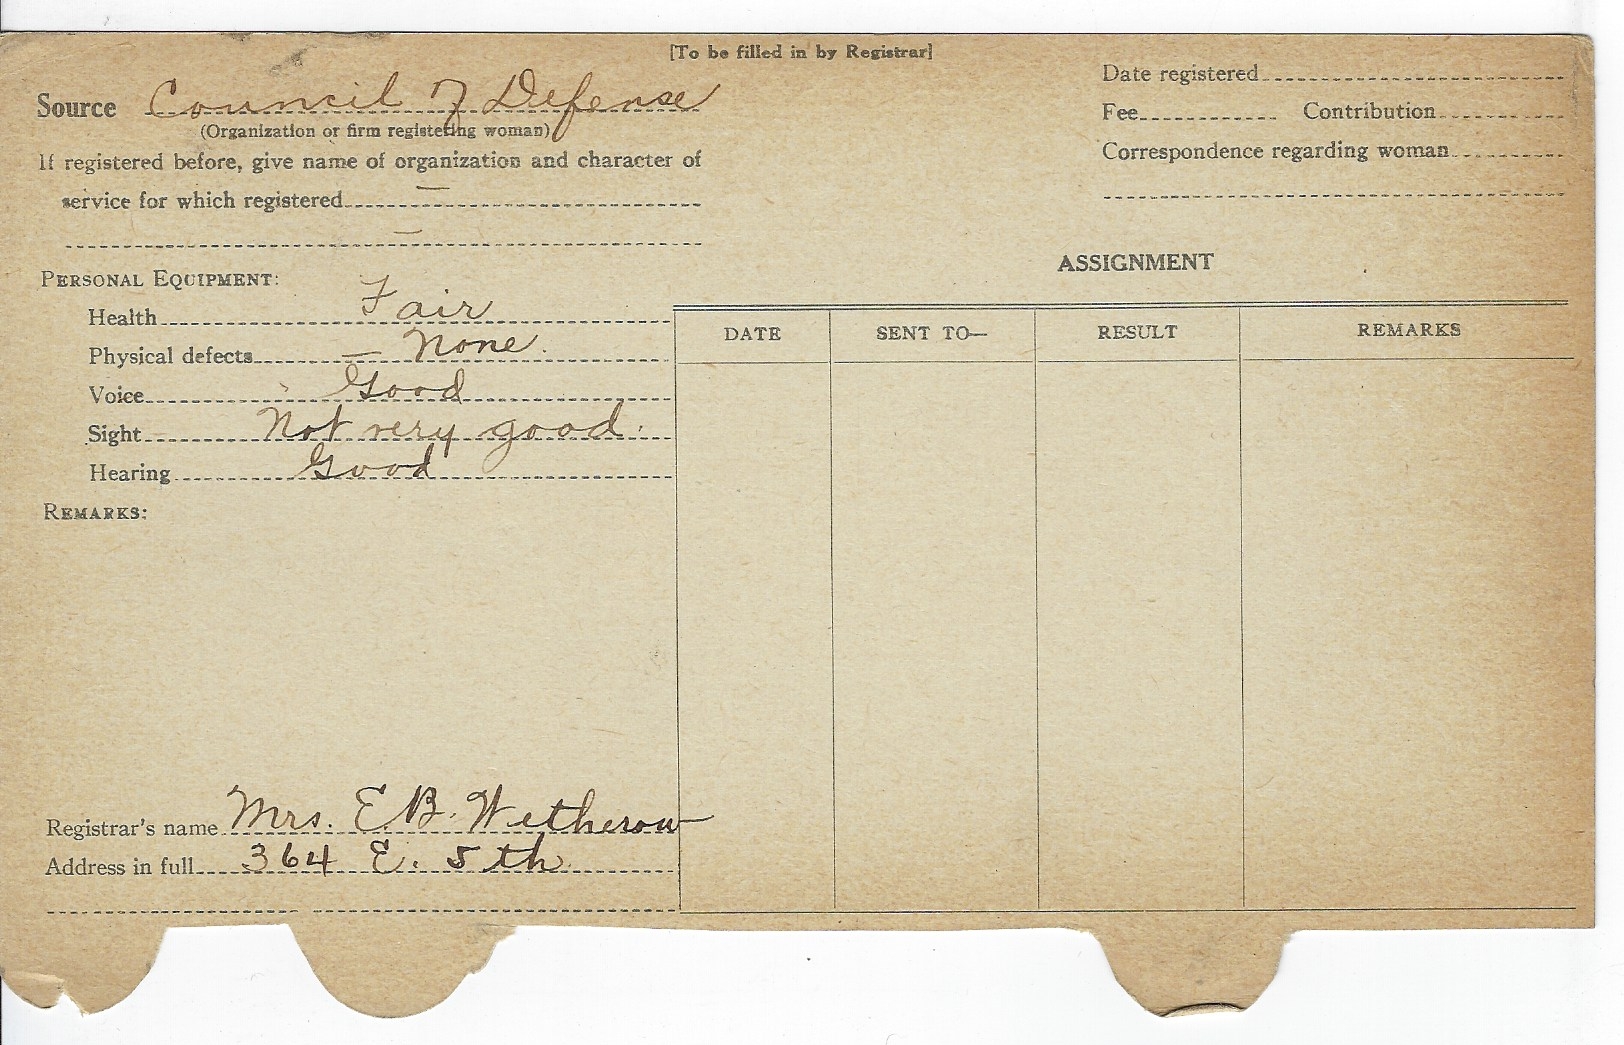 [To be filled in by Registrar]
Source Council of Defense
(Organization or firm registering woman)
If registered before, give name of organization and character of
service for which registered —
—
Date registered
Fee Contribution
Correspondence regarding woman
PERSONAL EQUIPMENT:
Health Fair
Physical defects — None.
Voice Good
Sight Not very good.
Hearing Good
REMARKS:
Registrar's name Mrs. E.B. Wetherow
Address in full 364 E. 5th.
ASSIGNMENT
DATE SENT TO— RESULT REMARKS